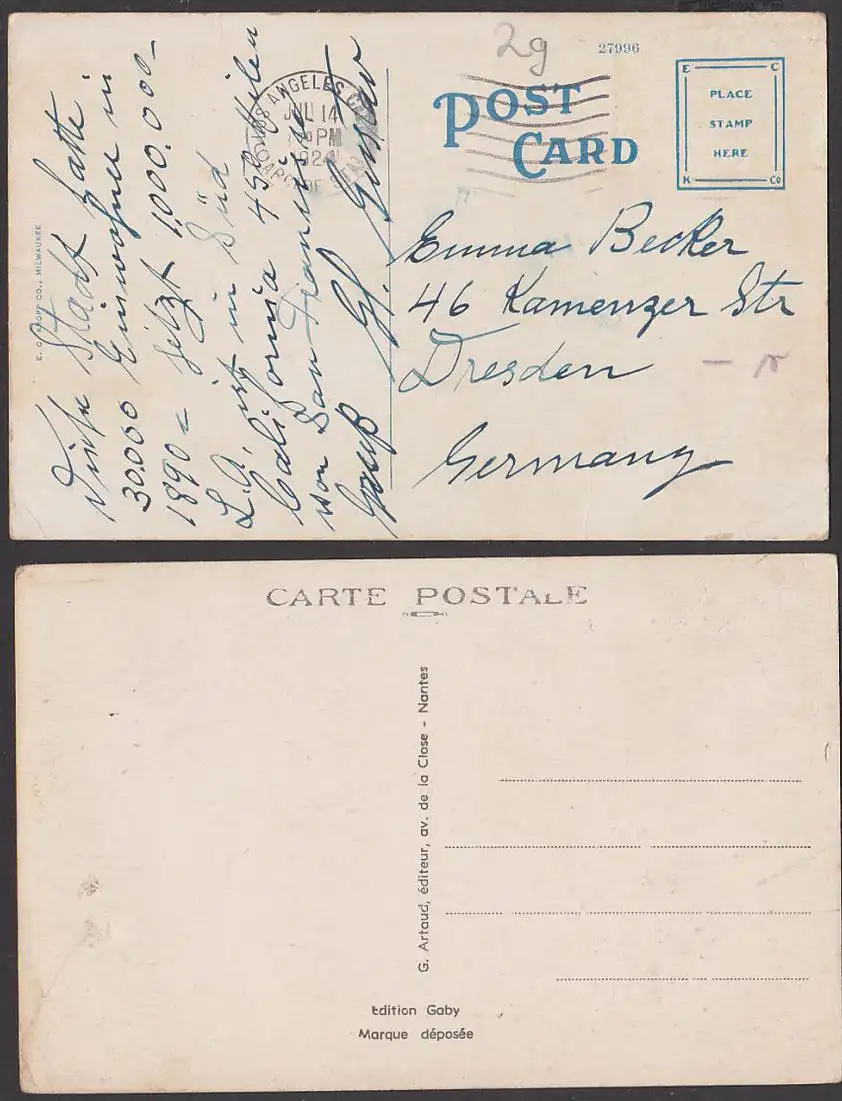 2g
27996
POST
CARD
E C
PLACE
STAMP
HERE
K Co
LOS ANGELES
JUL 14
PM
192
E. C. KROPP CO., MILWAUKEE
Diese Stadt hatte
30.000 Einwohner in
1890 = jetzt 1,000.000 -
L.A. ist in Süd
California 450 Meilen
von San Francisco
Gruß Gustav
Emma Becker
46 Kamenzer Str
Dresden
Germany
CARTE POSTALE
G. Artaud, éditeur, av. de la Close - Nantes
Edition Gaby
Marque déposée